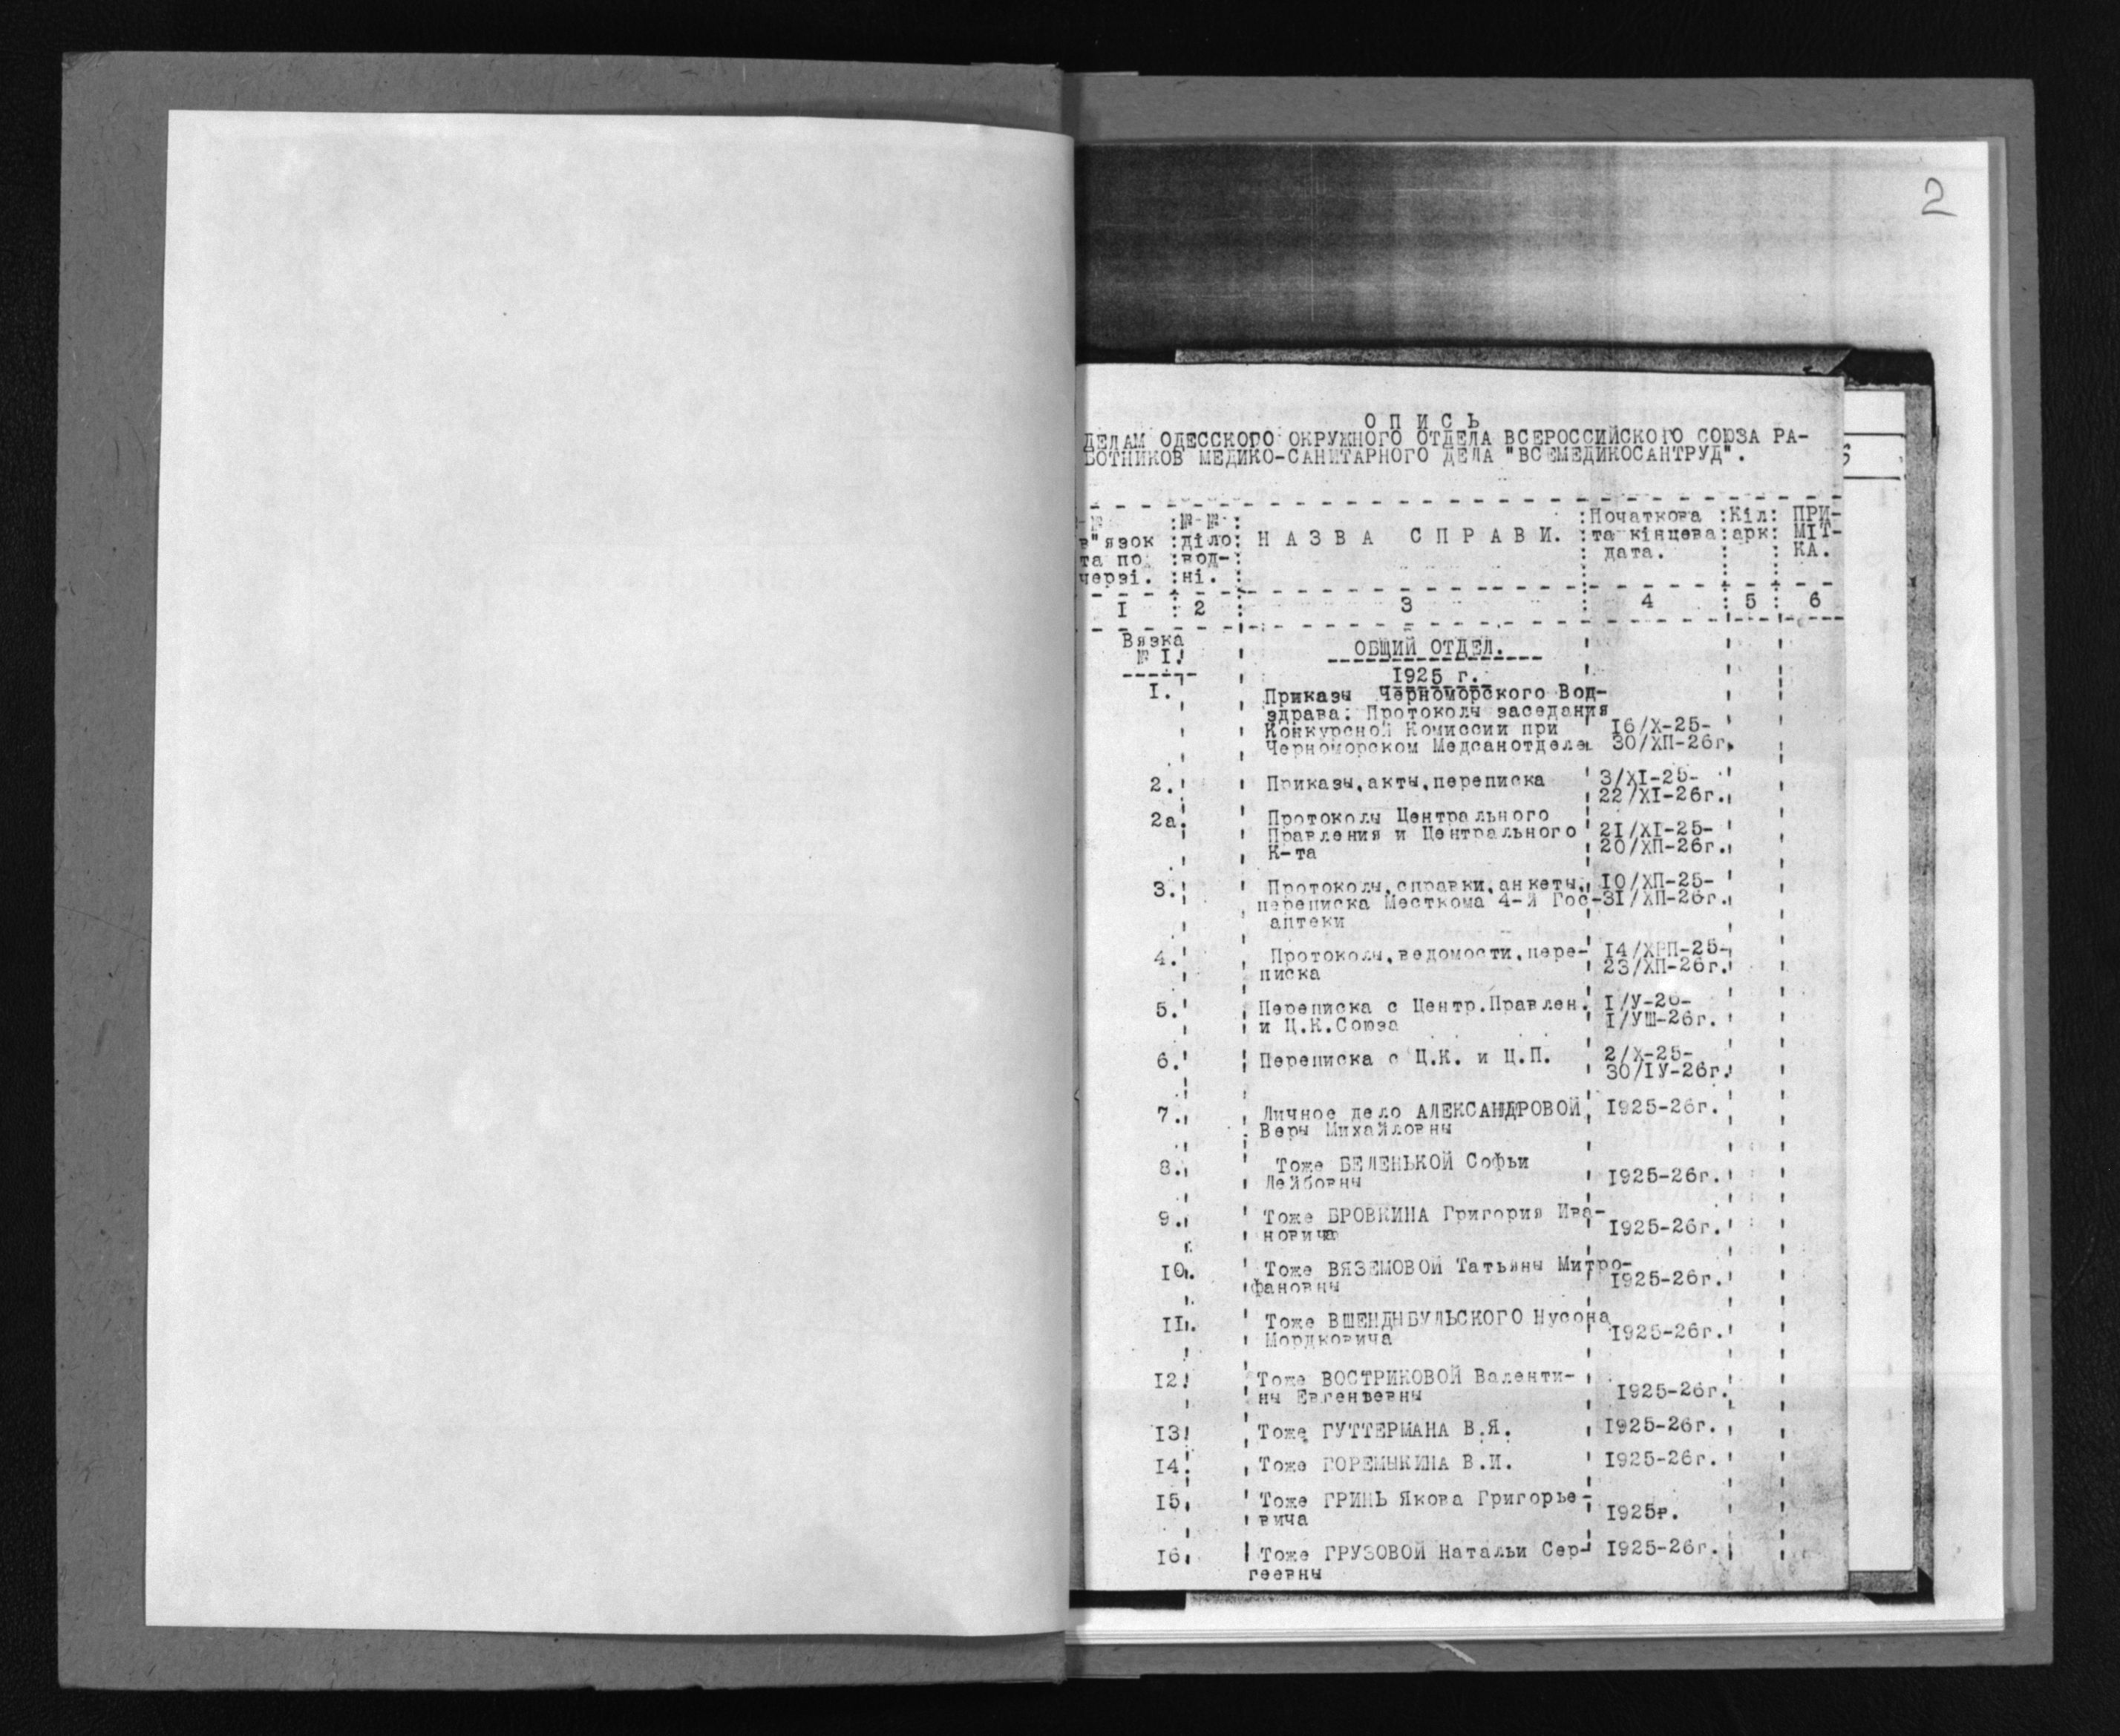 2
О П И С Ь
ДЕЛАМ ОДЕССКОГО ОКРУЖНОГО ОТДЕЛА ВСЕРОССИЙСКОГО СОЮЗА РА-
БОТНИКОВ МЕДИКО-САНИТАРНОГО ДЕЛА "ВСЕМЕДИКОСАНТРУД".
№ в"язок та по черзі.
№-№ діло вод- ні.
Н А З В А С П Р А В И.
Початкова та кінцева дата.
Кіл арк
ПРИ- МІТ- КА.
I 2 3 4 5 6
Вязка
№ I.
ОБЩИЙ ОТДЕЛ.
I925 г.
I. Приказы Черноморского Вод-
здрава: Протоколы заседания
Конкурсной Комиссии при I6/X-25-
Черноморском Медсанотделе 30/ХП-26г.
2. Приказы,акты,переписка 3/XI-25-
22/XI-26г.
2а. Протоколы Центрального
Правления и Центрального 2I/XI-25-
К-та 20/ХП-26г.
3. Протоколы,справки,анкеты, I0/ХП-25-
переписка Месткома 4-й Гос- 3I/ХП-26г.
аптеки
4. Протоколы,ведомости,пере- I4/ -25-
писка 23/ХП-26г.
5. Переписка с Центр.Правлен. I/У-26-
и Ц.К.Союза I/УШ-26г.
6. Переписка с Ц.К. и Ц.П. 2/X-25-
30/IУ-26г.
7. Личное дело АЛЕКСАНДРОВОЙ I925-26г.
Веры Михайловны
8. Тоже БЕЛЕНЬКОЙ Софьи
Лейбовны I925-26г.
9. Тоже БРОВКИНА Григория Ива-
новича I925-26г.
I0. Тоже ВЯЗЕМОВОЙ Татьяны Митро-
фановны I925-26г.
II. Тоже ВШЕНДЫБУЛЬСКОГО Нусона
Мордковича I925-26г.
I2. Тоже ВОСТРИКОВОЙ Валенти-
ны Евгеньевны I925-26г.
I3. Тоже ГУТТЕРМАНА В.Я. I925-26г.
I4. Тоже ГОРЕМЫКИНА В.И. I925-26г.
I5. Тоже ГРИНЬ Якова Григорье-
вича I925г.
I6. Тоже ГРУЗОВОЙ Натальи Сер- I925-26г.
геевны